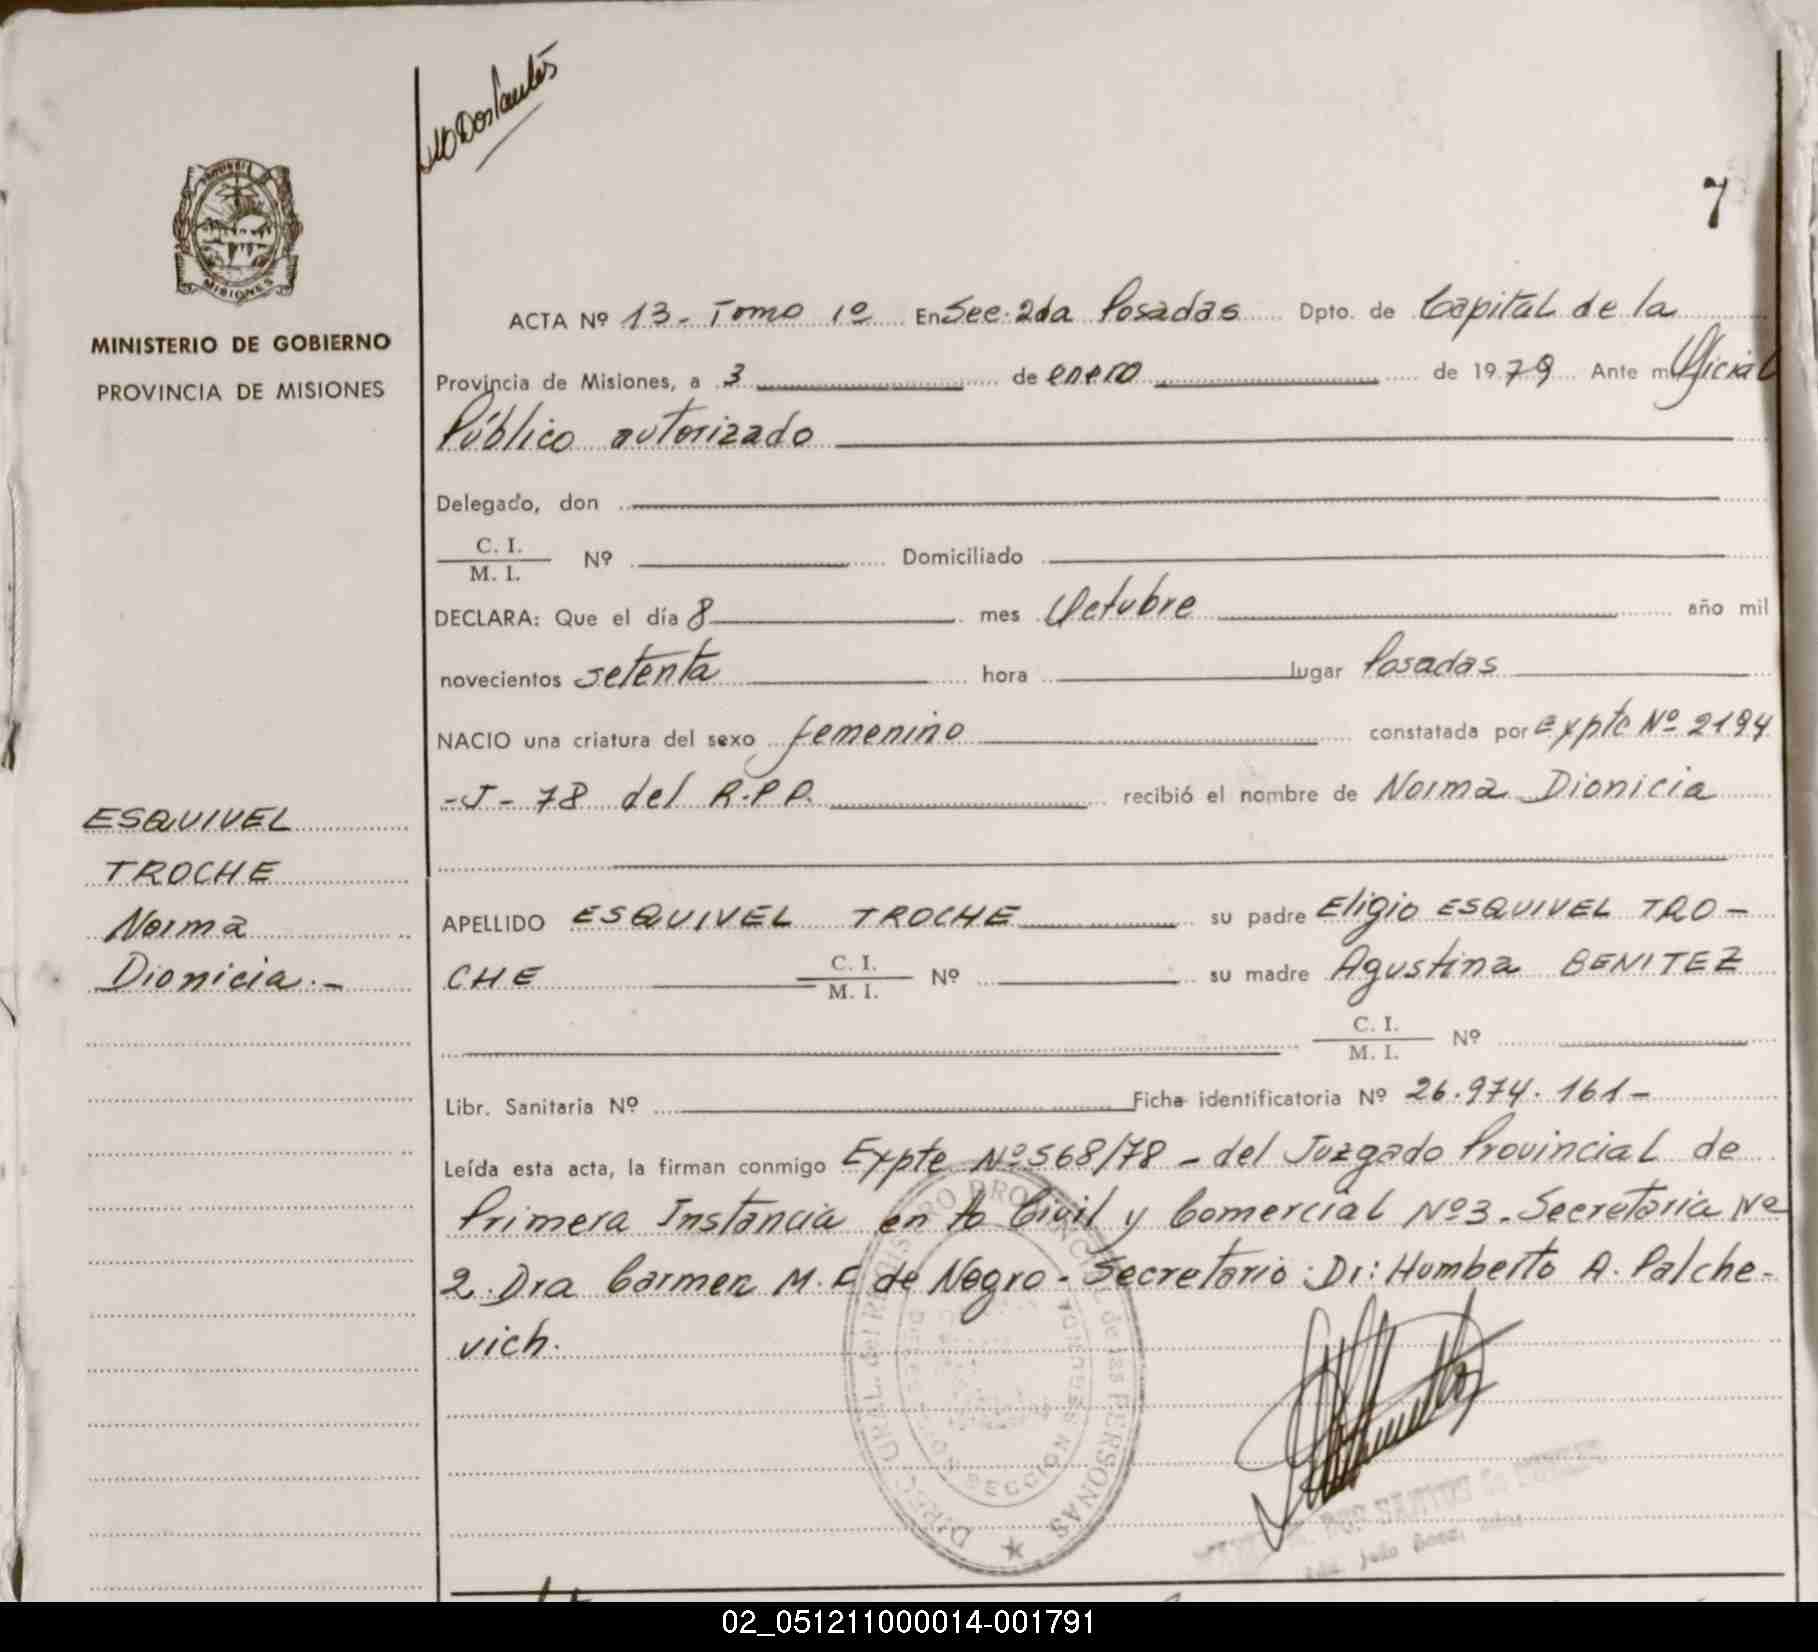 7
MISIONES
MINISTERIO DE GOBIERNO
PROVINCIA DE MISIONES
ACTA Nº 13 - Tomo 1º En Sec. 2da Posadas Dpto. de Capital de la
Provincia de Misiones, a 3 de enero de 1979 Ante mi Oficial
Público autorizado
Delegado, don
C. I.
M. I. Nº Domiciliado
DECLARA: Que el día 8 mes Octubre año mil
novecientos setenta hora lugar Posadas
NACIO una criatura del sexo femenino constatada por Expte Nº 2194
-J- 78 del R.P.P. recibió el nombre de Norma Dionicia
ESQUIVEL
TROCHE
Norma
Dionicia.-
APELLIDO ESQUIVEL TROCHE su padre Eligio ESQUIVEL TRO-
CHE C. I.
M. I. Nº su madre Agustina BENITEZ
C. I.
M. I. Nº
Libr. Sanitaria Nº Ficha identificatoria Nº 26.974.161-
Leída esta acta, la firman conmigo Expte Nº 568/78 - del Juzgado Provincial de
Primera Instancia en lo Civil y Comercial Nº 3. Secretaria Nº
2. Dra Carmen M. C de Negro - Secretario: Dr: Humberto A. Palche-
vich.
DIREC. GRAL. del REGISTRO PROVINCIAL de las PERSONAS
SECCION
02_051211000014-001791